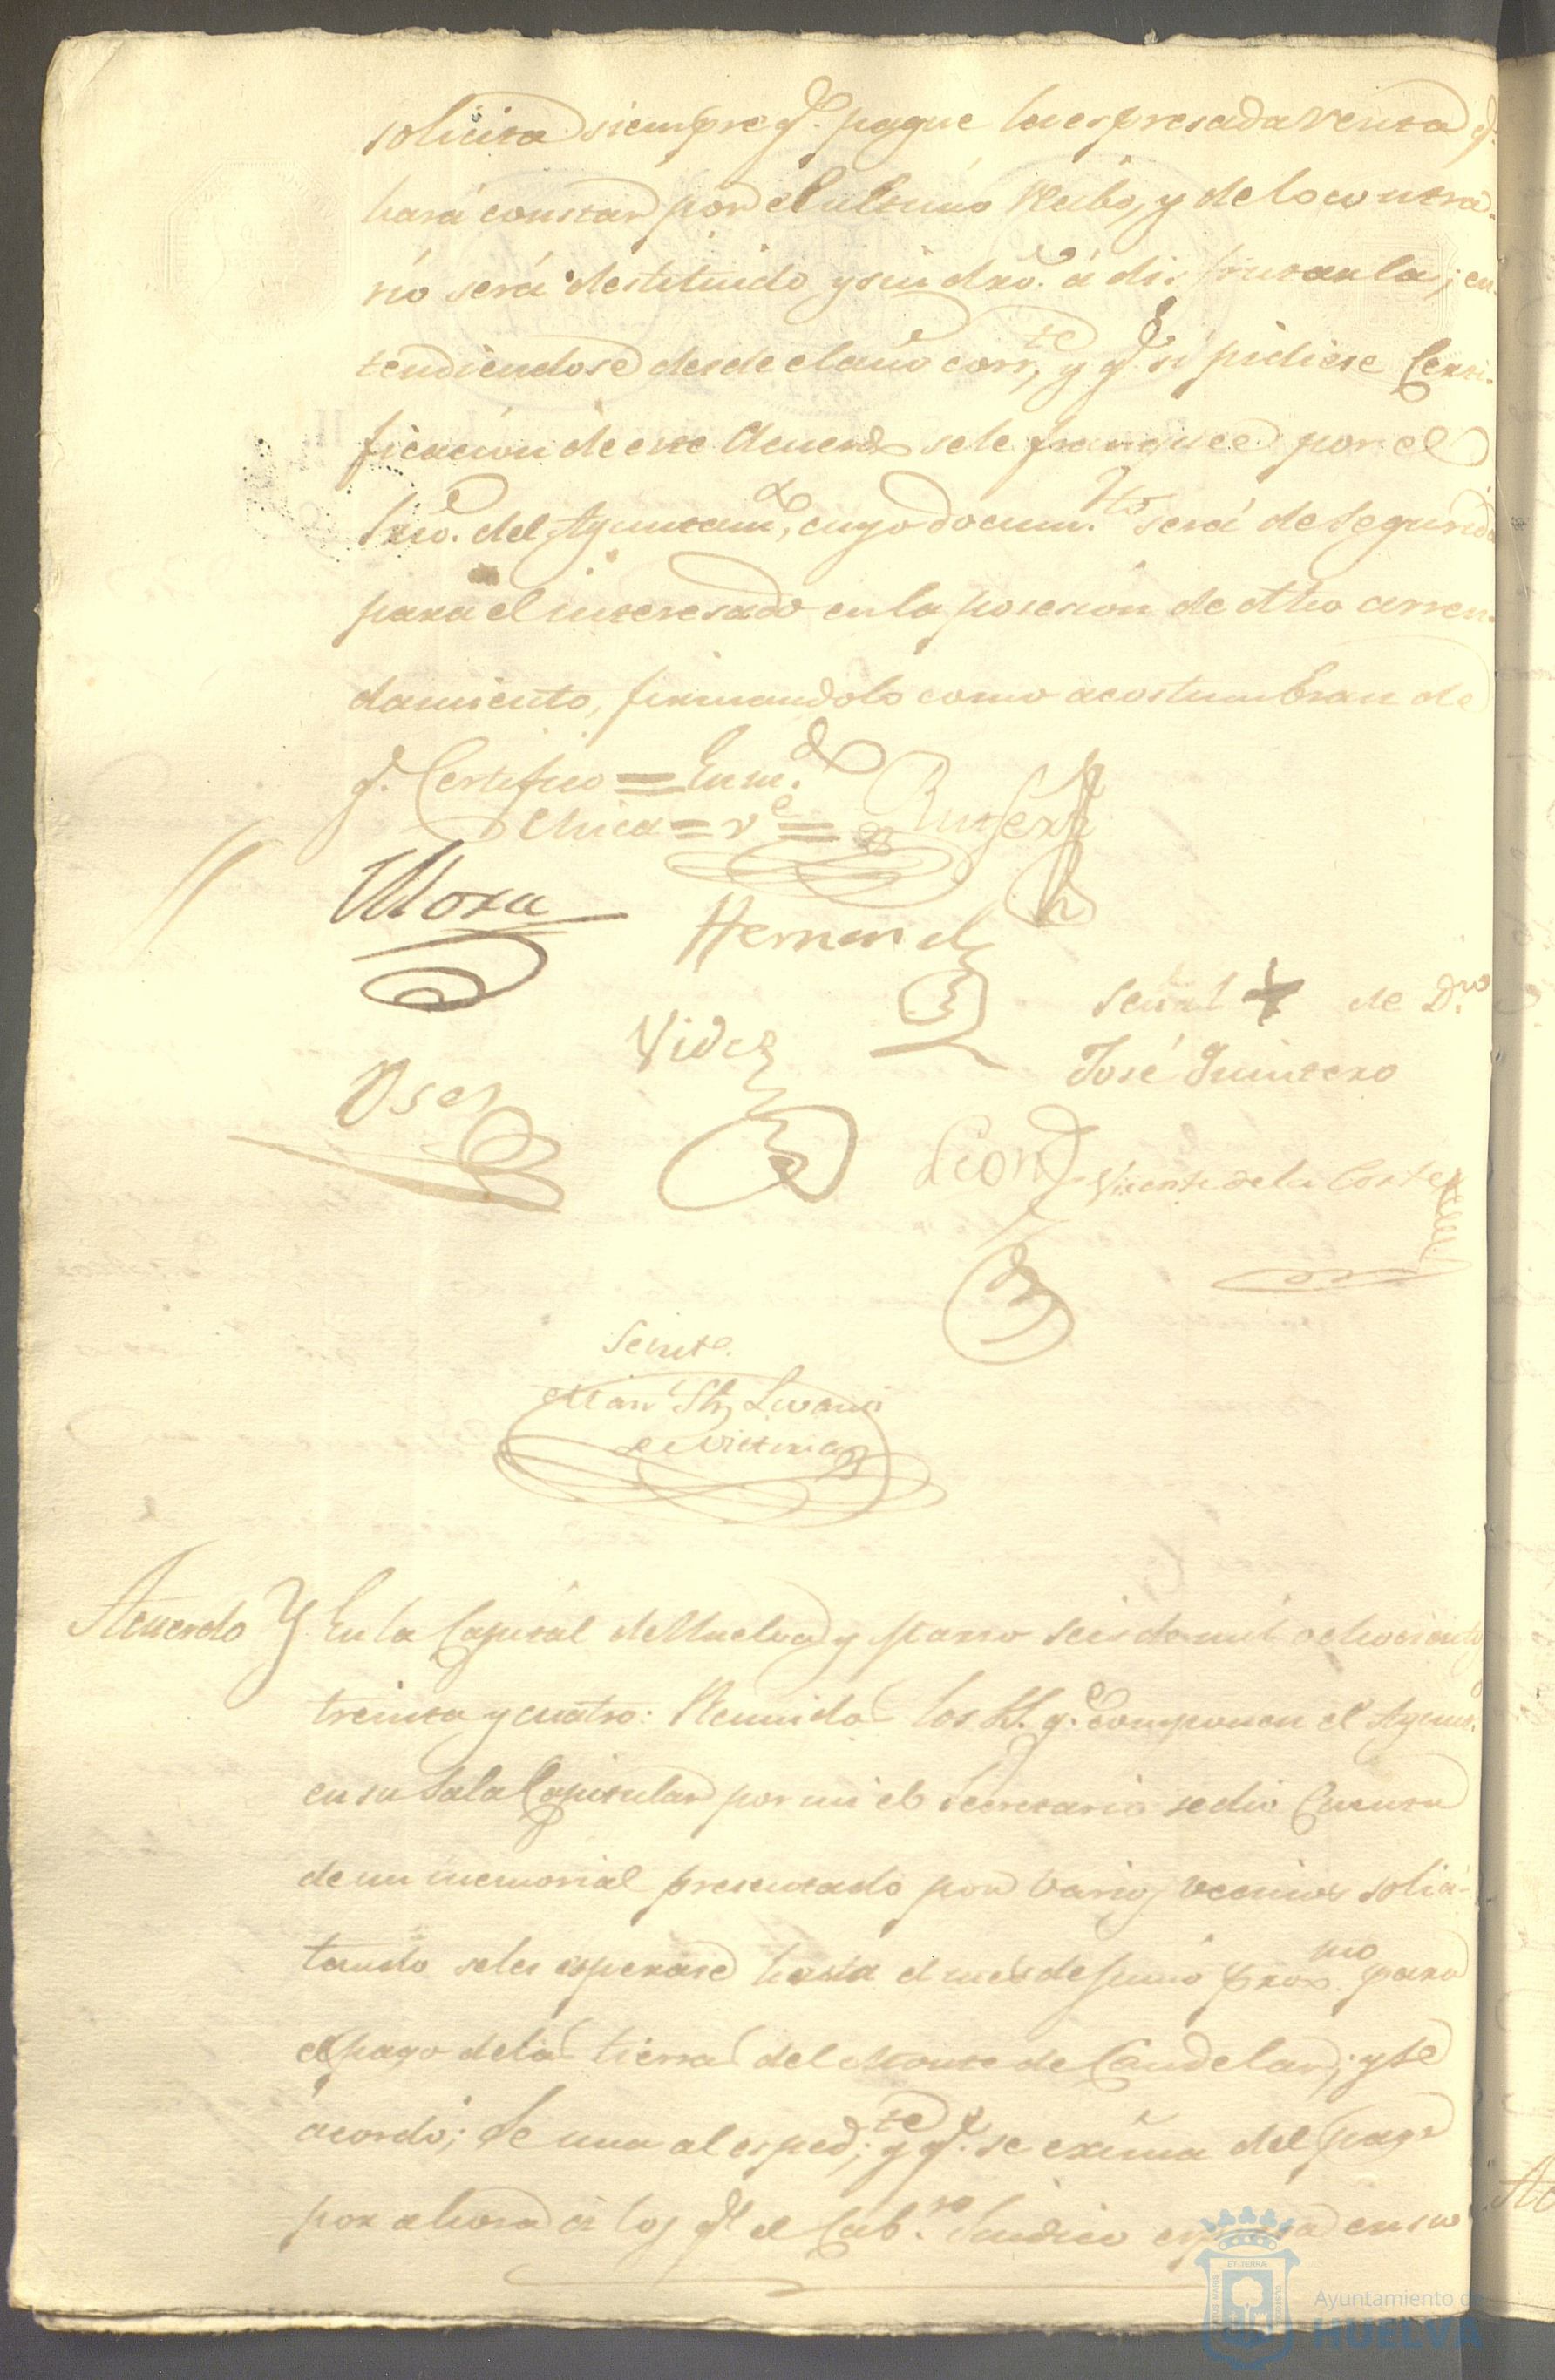 solicita siempre q.e pague la espresada renta q.e
hará constar por el ultimo Recibo, y de lo contra-
rio será destituido y sin dro. á disfrutarla; en-
tendiendose desde el año corr.te, y q.e si pidiese Certi-
ficacion de este Acuerdo se le franquee por el
Srio. del Ayuntam.to, cuyo docum.to será de seguridad
para el interesado en la posesion de dho arren-
damiento, firmandolo como acostumbran de
q.e Certifico = Enm.do
Chica = v.e =
Mora
Hernand
Señal + de D.n
José Quintero
Videz
Leon
Vicente de la Corte
Acuerdo } En la Capital de Huelva y Marzo seis de mil ochocientos
treinta y cuatro: Reunidos los SS. q.e componen el Ayunt.
en su Sala Capitular por mi el Secretario se dio Cuenta
de un memorial presentado por varios vecinos solici-
tando se les esperase hasta el mes de Junio prox.mo para
el pago de las tierras del Monte de Candelar; y se
acordó; Se una al esped.te; y q.e se exima del pago
por ahora á los q.e el Cab.ro Sindico espresa en su
Ayuntamiento de
HUELVA